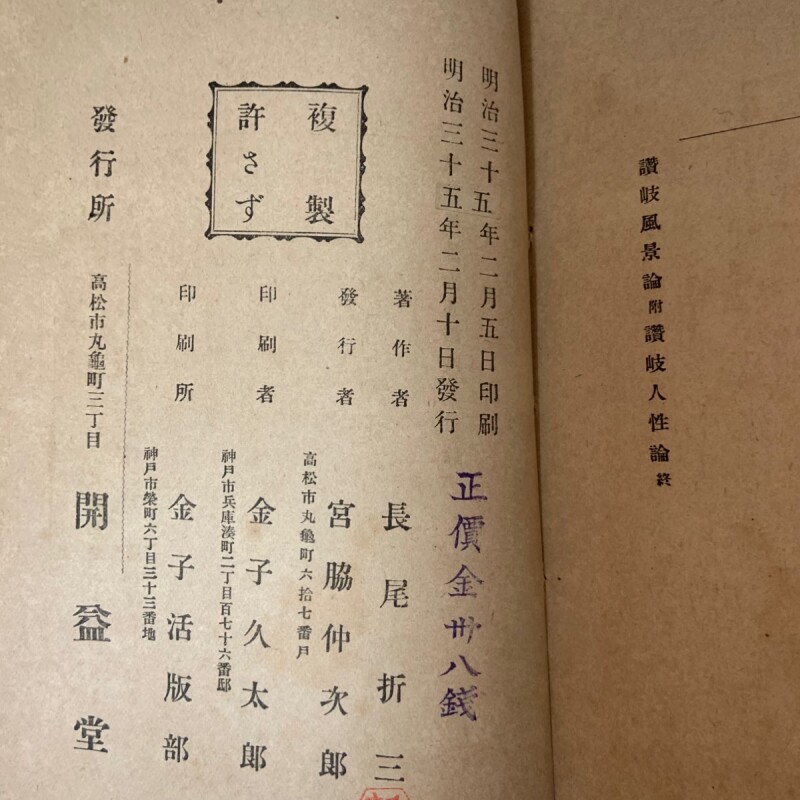 讃岐風景論附讃岐人性論終
明治三十五年二月五日印刷
明治三十五年二月十日發行
正價金卅八錢
著作者 長尾折三
高松市丸龜町六拾七番戸
發行者 宮脇仲次郎
神戸市兵庫湊町二丁目百七十六番邸
印刷者 金子久太郎
神戸市榮町六丁目三十三番地
印刷所 金子活版部
複製
許さず
發行所 高松市丸龜町三丁目 開益堂